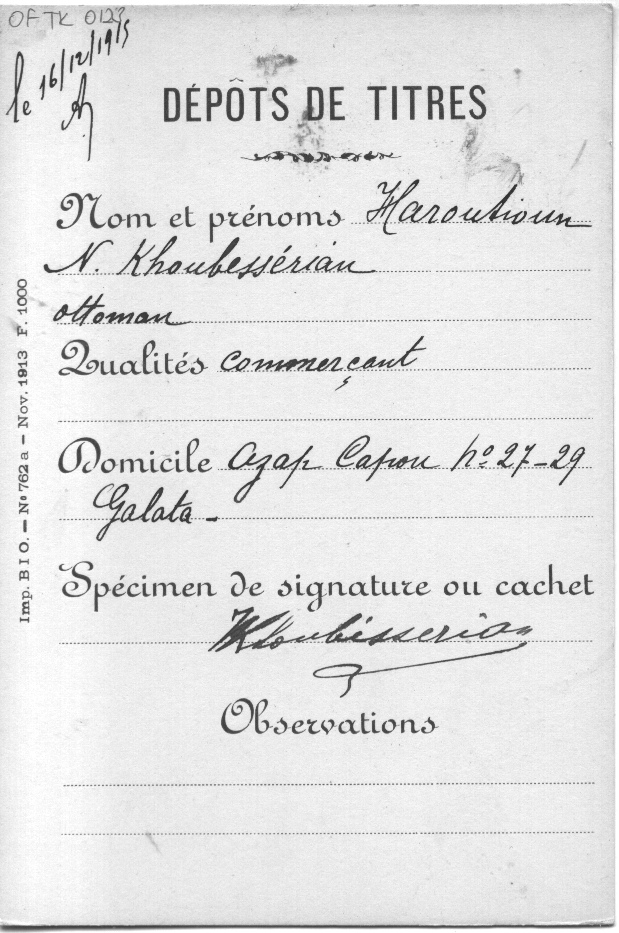 OFTK 0123
le 16/12/1915
DÉPÔTS DE TITRES
Nom et prénoms Haroutioun
N. Khoubessérian
ottoman
Qualités commerçant
Domicile Azap Capou No 27-29
Galata -
Spécimen de signature ou cachet
Khoubésserian
Observations
Imp. B I O. — No 762 a — Nov. 1913 F. 1000